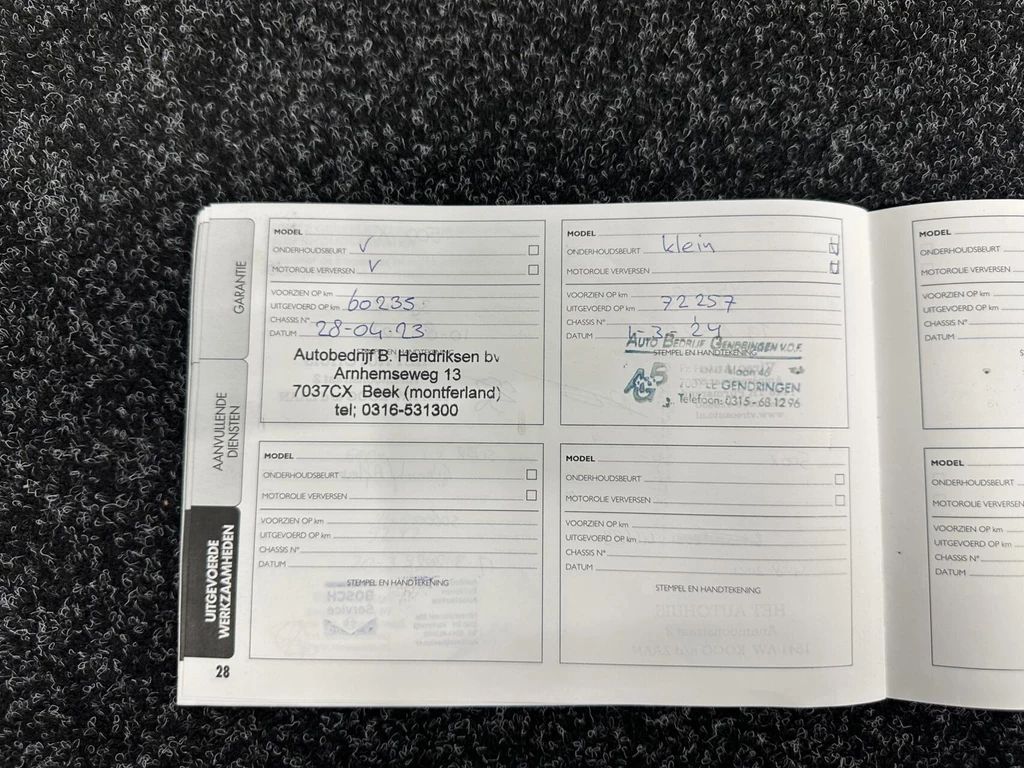 GARANTIE
AANVULLENDE
DIENSTEN
UITGEVOERDE
WERKZAAMHEDEN
28
MODEL
ONDERHOUDSBEURT V
MOTOROLIE VERVERSEN V
VOORZIEN OP km
UITGEVOERD OP km 60235
CHASSIS N°
DATUM 28-04-23
Autobedrijf B. Hendriksen bv
Arnhemseweg 13
7037CX Beek (montferland)
tel; 0316-531300
MODEL
ONDERHOUDSBEURT klein
MOTOROLIE VERVERSEN
VOORZIEN OP km
UITGEVOERD OP km 72257
CHASSIS N°
DATUM 1-3-24
AUTO BEDRIJF GENDRINGEN V.O.F.
STEMPEL EN HANDTEKENING
laan 46
GENDRINGEN
Telefoon: 0315-681296
MODEL
ONDERHOUDSBEURT
MOTOROLIE VERVERSEN
VOORZIEN OP km
UITGEVOERD OP km
CHASSIS N°
DATUM
STEMPEL EN HANDTEKENING
MODEL
ONDERHOUDSBEURT
MOTOROLIE VERVERSEN
VOORZIEN OP km
UITGEVOERD OP km
CHASSIS N°
DATUM
STEMPEL EN HANDTEKENING
MODEL
ONDERHOUDSBEURT
MOTOROLIE VERVERSEN
VOORZIEN OP km
UITGEVOERD OP km
CHASSIS N°
DATUM
MODEL
ONDERHOUDSBEURT
MOTOROLIE VERVERSEN
VOORZIEN OP km
UITGEVOERD OP km
CHASSIS N°
DATUM